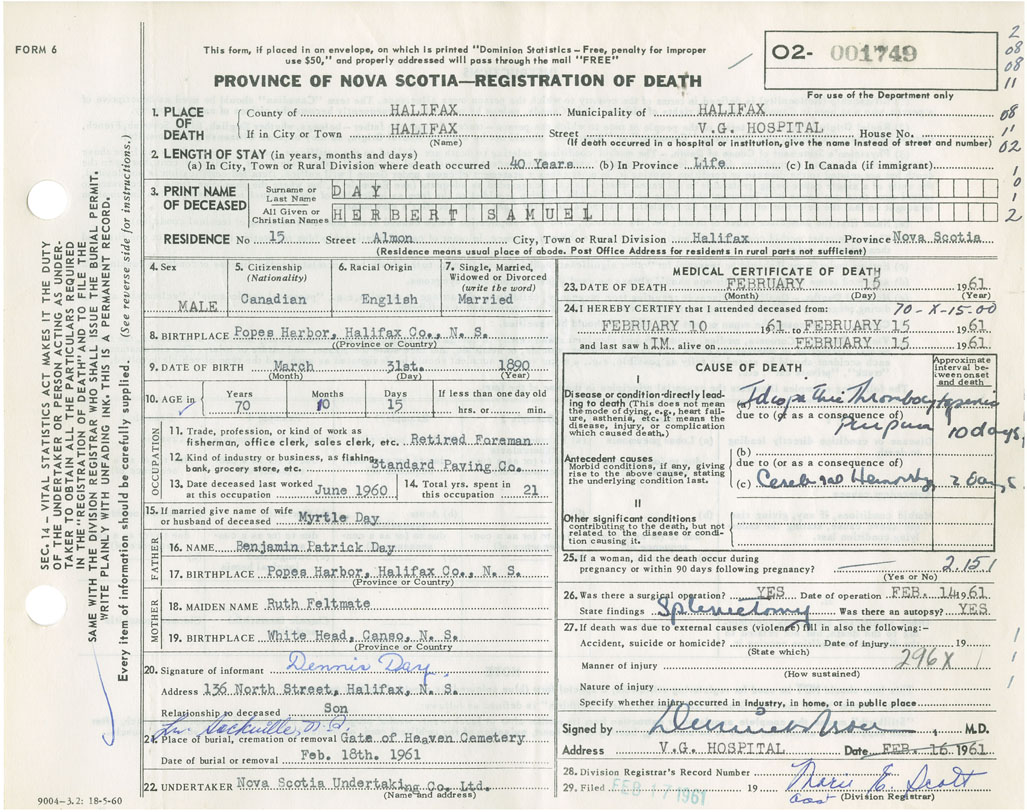 FORM 6
This form, if placed in an envelope, on which is printed "Dominion Statistics – Free, penalty for improper
use $50," and properly addressed will pass through the mail "FREE"
PROVINCE OF NOVA SCOTIA—REGISTRATION OF DEATH
O2- 001749
For use of the Department only
2
08
08
11
08
11
02
1
0
1
2
1. PLACE OF DEATH
County of HALIFAX Municipality of HALIFAX
If in City or Town HALIFAX Street V.G. HOSPITAL House No.
(Name) (If death occurred in a hospital or institution, give the name instead of street and number)
2. LENGTH OF STAY (in years, months and days)
(a) In City, Town or Rural Division where death occurred 40 Years (b) In Province Life (c) In Canada (if immigrant)
3. PRINT NAME OF DECEASED
Surname or Last Name DAY
All Given or Christian Names HERBERT SAMUEL
RESIDENCE No 15 Street Almon City, Town or Rural Division Halifax Province Nova Scotia
(Residence means usual place of abode. Post Office Address for residents in rural parts not sufficient)
4. Sex MALE
5. Citizenship (Nationality) Canadian
6. Racial Origin English
7. Single, Married, Widowed or Divorced (write the word) Married
8. BIRTHPLACE Popes Harbor, Halifax Co., N. S.
(Province or Country)
9. DATE OF BIRTH March 31st. 1890
(Month) (Day) (Year)
10. AGE in Years 70 Months 10 Days 15 If less than one day old hrs. or min.
OCCUPATION
11. Trade, profession, or kind of work as
fisherman, office clerk, sales clerk, etc. Retired Foreman
12. Kind of industry or business, as fishing,
bank, grocery store, etc. Standard Paving Co.
13. Date deceased last worked at this occupation June 1960
14. Total yrs. spent in this occupation 21
15. If married give name of wife or husband of deceased Myrtle Day
FATHER
16. NAME Benjamin Patrick Day
17. BIRTHPLACE Popes Harbor, Halifax Co., N. S.
(Province or Country)
MOTHER
18. MAIDEN NAME Ruth Feltmate
19. BIRTHPLACE White Head, Canso, N. S.
(Province or Country
20. Signature of informant Dennis Day
Address 136 North Street, Halifax, N. S.
Relationship to deceased Son
Lr. Sackville, N.S.
21. Place of burial, cremation or removal Gate of Heaven Cemetery
Date of burial or removal Feb. 18th. 1961
22. UNDERTAKER Nova Scotia Undertaking Co. Ltd.
(Name and address)
9004–3.2: 18-5-60
MEDICAL CERTIFICATE OF DEATH
23. DATE OF DEATH FEBRUARY 15 1961
(Month) (Day) (Year)
24. I HEREBY CERTIFY that I attended deceased from: 70-X-15.00
FEBRUARY 10 1961 TO FEBRUARY 15 1961
and last saw hIM alive on FEBRUARY 15 1961
CAUSE OF DEATH
Approximate interval between onset and death
I
Disease or condition directly leading to death (This does not mean the mode of dying, e.g., heart failure, asthenia, etc. It means the disease, injury, or complication which caused death.)
(a) Idiopathic Thrombocytopenic
due to (or as a consequence of)
Purpura 10 days
Antecedent causes
Morbid conditions, if any, giving rise to the above cause, stating the underlying condition last.
(b)
due to (or as a consequence of)
(c) Cerebral Hemorrhg 2 Days
II
Other significant conditions
contributing to the death, but not related to the disease or condition causing it.
25. If a woman, did the death occur during
pregnancy or within 90 days following pregnancy? 2.151
(Yes or No)
26. Was there a surgical operation? YES Date of operation FEB. 14 1961
State findings Splenectomy Was there an autopsy? YES
27. If death was due to external causes (violence) fill in also the following:–
Accident, suicide or homicide? Date of injury 19
(State which)
Manner of injury 296X
(How sustained)
Nature of injury
Specify whether injury occurred in industry, in home, or in public place
1
1
1
Signed by M.D.
Address V.G. HOSPITAL Date FEB. 16 1961
28. Division Registrar's Record Number
29. Filed FEB 17 1961 19 E. Scott
(Division Registrar)
SEC. 14 – VITAL STATISTICS ACT MAKES IT THE DUTY
OF THE UNDERTAKER OR PERSON ACTING AS UNDER-
TAKER TO OBTAIN ALL THE PARTICULARS REQUIRED
IN THE "REGISTRATION OF DEATH" AND TO FILE THE
SAME WITH THE DIVISION REGISTRAR WHO SHALL ISSUE THE BURIAL PERMIT.
WRITE PLAINLY WITH UNFADING INK. THIS IS A PERMANENT RECORD.
Every item of information should be carefully supplied. (See reverse side for instructions.)